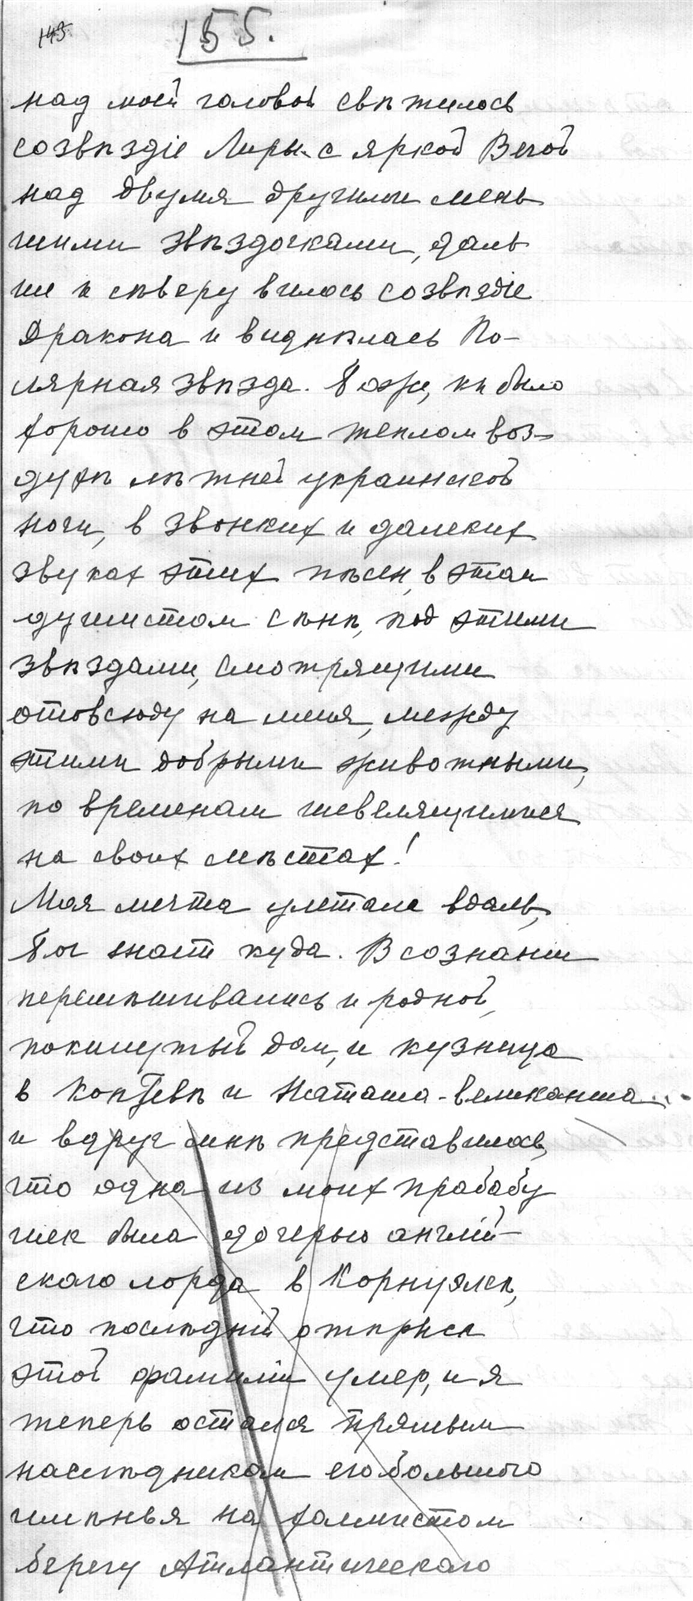 143
155.
над моей головой свѣтилось
созвѣздіе Лиры с яркой Вегой
над двумя другими мень
шими звѣздочками, даль
ше к сѣверу вилось созвѣздіе
Дракона и виднѣлась По-
лярная звѣзда. Боже, как было
хорошо в этом теплом воз-
духѣ лѣтней украинской
ночи, в звонких и далеких
звуках этих пѣсен, в этом
душистом сѣнѣ, под этими
звѣздами, смотрящими
отовсюду на меня, между
этими добрыми животными,
по временам шевелящимися
на своих мѣстах!
Моя мечта улетала вдаль,
Бог знает куда. В сознаніи
перемѣшивались и родной,
покинутый дом, и кузница
в Коптевѣ и Наташа-великанша...
и вдруг мнѣ представилось,
что одна из моих прабабу
шек была дочерью англій-
скаго лорда в Корнуэлсѣ,
что послѣдній отпрыск
этой фамиліи умер, и я
теперь остался прямым
наслѣдником его большого
имѣнья на холмистом
берегу Атлантическаго